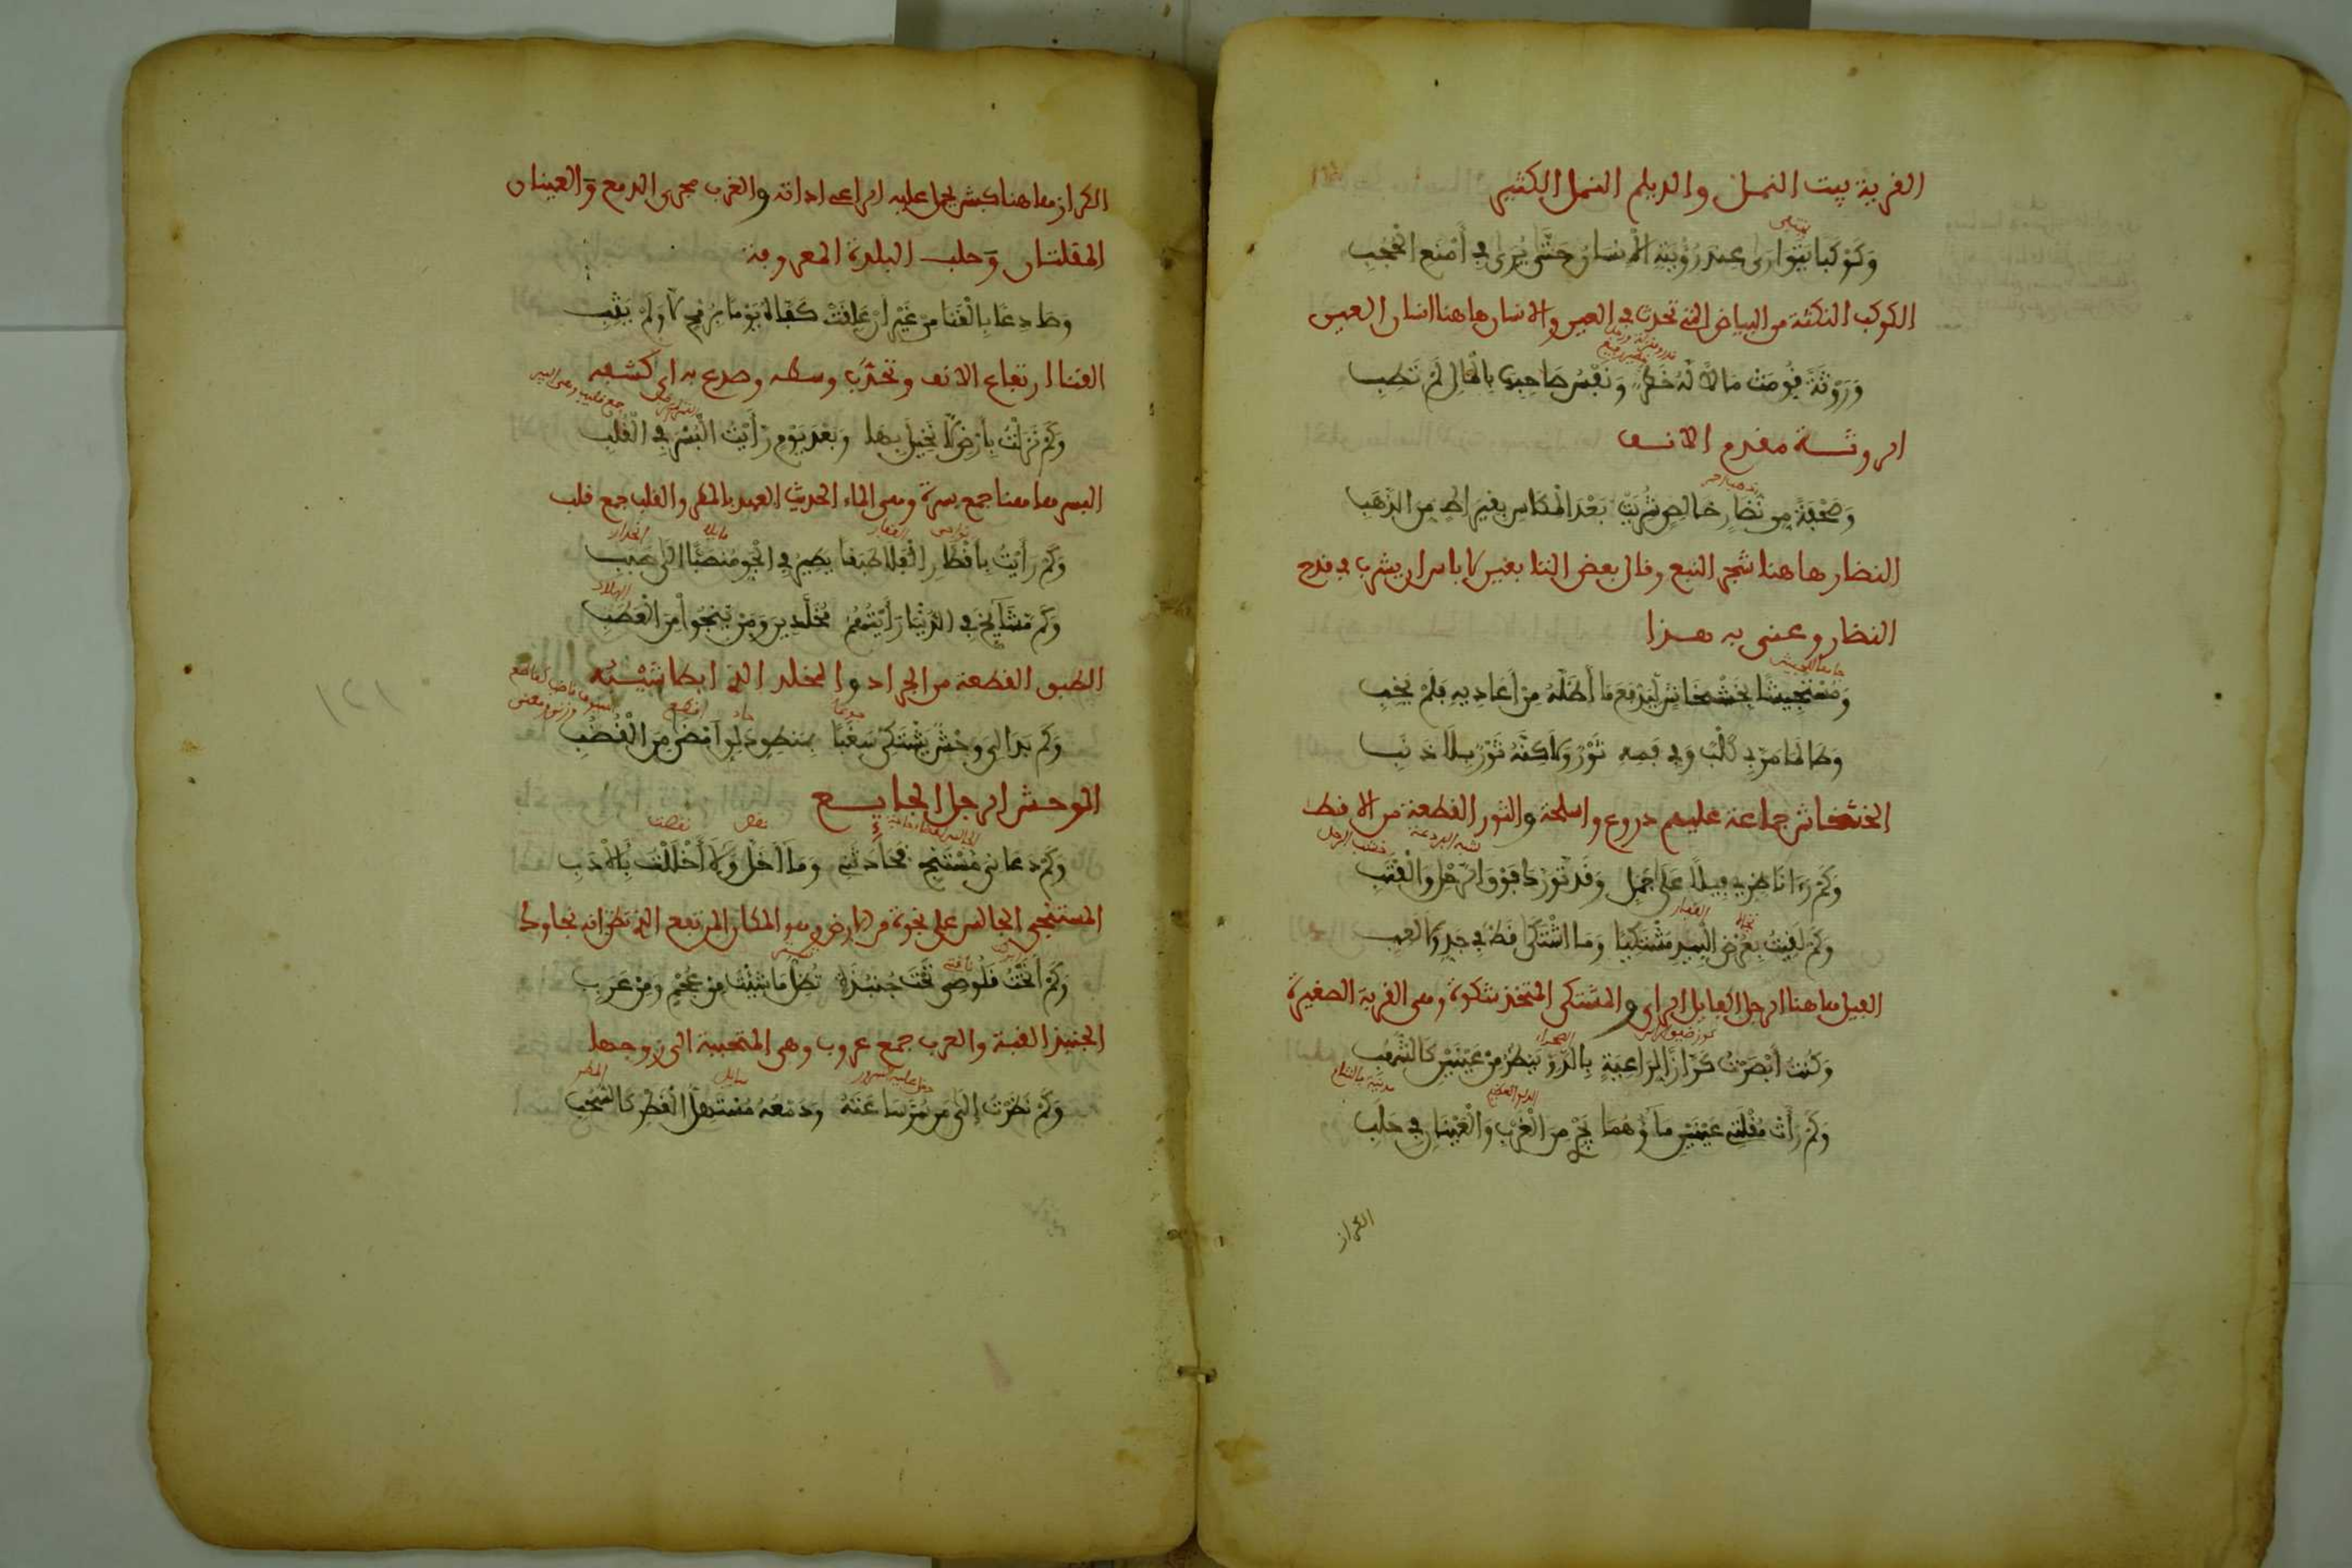 القرية بيت النمل والديلم النمل الكثير
وَكَوْكَبا يَتَوارى عند رُؤْيَتِهِ الانسان حَتَّى يُرى في أَمْنَعِ الحُجُبِ
الكوكب النكتة من البياض التي تحدث في العين والانسان هاهنا انسان العين
وَرَوْثَةً قُوِّمَتْ مَالًا لَهُ خَطَرٌ وَنَفْسُ صَاحِبِهَا بالْمَالِ لَمْ تَطِبِ
الروثة مقدم الانف
وَصَحْفَةً مِن نُضَارٍ خالصٍ شُرِيَتْ بَعْدَ الْمِكَاسِ بِقِيرَاطٍ مِنَ الذَّهَبِ
النضار هاهنا شجر النبع وقال بعض التابعين لا باس ان يشرب في قدح
النضار وعنى به هذا
وَمُسْتَجِيشًا بِخَشْخَاشٍ لِيَدْفَعَ مَا أَظَلَّهُ مِنْ أَعَادِيهِ فَلَمْ يَخِبِ
وَطَالَمَا مَرَّ بِي كَلْبٌ وَفِي فَمِهِ ثَوْرٌ وَلَكِنَّهُ ثَوْرٌ بِلَا ذَنَبِ
الخشخاش جماعة عليهم دروع واسلحة والثور القطعة من الاقط
وَكَمْ رَءا نَاظِرِي فِيلًا عَلَى جَمَلٍ وَقَدْ تَوَرَّكَ فَوْقَ الرَّحْلِ وَالْقَتَبِ
وَكَمْ لَقِيتُ بِعُرْضِ الْبِيدِ مُشْتَكِيًا وَمَا اشْتَكَى قَطُّ فِي جِدٍّ وَلَا لَعِبِ
الفيل هاهنا الرجل الفايل الراي والمشتكي المتخذ شكوة وهي القربة الصغيرة
وَكُنْتُ أَبْصَرْتُ كَرَّازًا لِرَاعِيَةٍ بِالدَّوِّ يَنْظُرُ مِنْ عَيْنَيْنِ كَالشُّهُبِ
وَكَمْ رَأَتْ مُقْلَتِي عَيْنَيْنِ مَاؤُهُمَا يَجْرِي مِنَ الْغَرْبِ وَالْعَيْنَانِ فِي حَلَبِ
الكراز
الكراز هاهنا كبش يحمل عليه الراعي اداته والغرب مجرى الدمع والعينان
المقلتان وحلب البلدة المعروفة
وَصَادِعًا بِالْقَنَا مِنْ غَيْرِ أَنْ عَلِقَتْ كَفَّاهُ يَوْمًا بِرُمْحٍ لَا وَلَمْ يَثِبِ
القنا ارتفاع الانف وتحدب وسطه وصدع به اي كشفه
وَكَمْ نَزَلْتُ بِأَرْضٍ لَا نَخِيلَ بِهَا وَبَعْدَ يَوْمٍ رَأَيْتُ الْبُسْرَ فِي الْقُلُبِ
البسر هاهنا جمع بسرة وهي الماء الحديث العهد بالمطر والقلب جمع قليب
وَكَمْ رَأَيْتُ بِأَقْطَارِ الْفَلَا طَبَقًا يَطِيرُ فِي الْجَوِّ مُنْصَبًّا إِلَى صَبَبِ
وَكَمْ مَشَايِخَ فِي الدُّنْيَا رَأَيْتُهُمُ مُخَلَّدِينَ وَمَنْ يَنْجُوا مِنَ الْعَطَبِ
الطبق القطعة من الجراد والمخلد الذي ابطا شيبه
وَكَمْ بَدَا لِي وَحْشٌ يَشْتَكِي سَغَبًا بِمَنْطِقٍ ذَلِقٍ أَمْضَى مِنَ الْقُضُبِ
الوحش الرجل الجايع
وَكَمْ دَعَانِي مُسْتَنْجٍ فَحَادَثَنِي وَمَا أَخَلَّ وَلَا أَخْلَلْتُ بِالْأَدَبِ
المستنجي الجالس على نجوة من الارض وهو المكان المرتفع الذي تظن انه نجاوك
وَكَمْ أَنَخْتُ قَلُوصِي تَحْتَ جُنْبُذَةٍ تُظِلُّ مَا شِئْتَ مِنْ عُجْمٍ وَمِنْ عَرَبِ
الجنبذ القبة والعرب جمع عروب وهي المتحببة الى زوجها
وَكَمْ نَظَرْتُ إِلَى مَنْ سُرَّ سَاعَتَهُ وَدَمْعُهُ مُسْتَهِلُّ الْقَطْرِ كَالسُّحُبِ